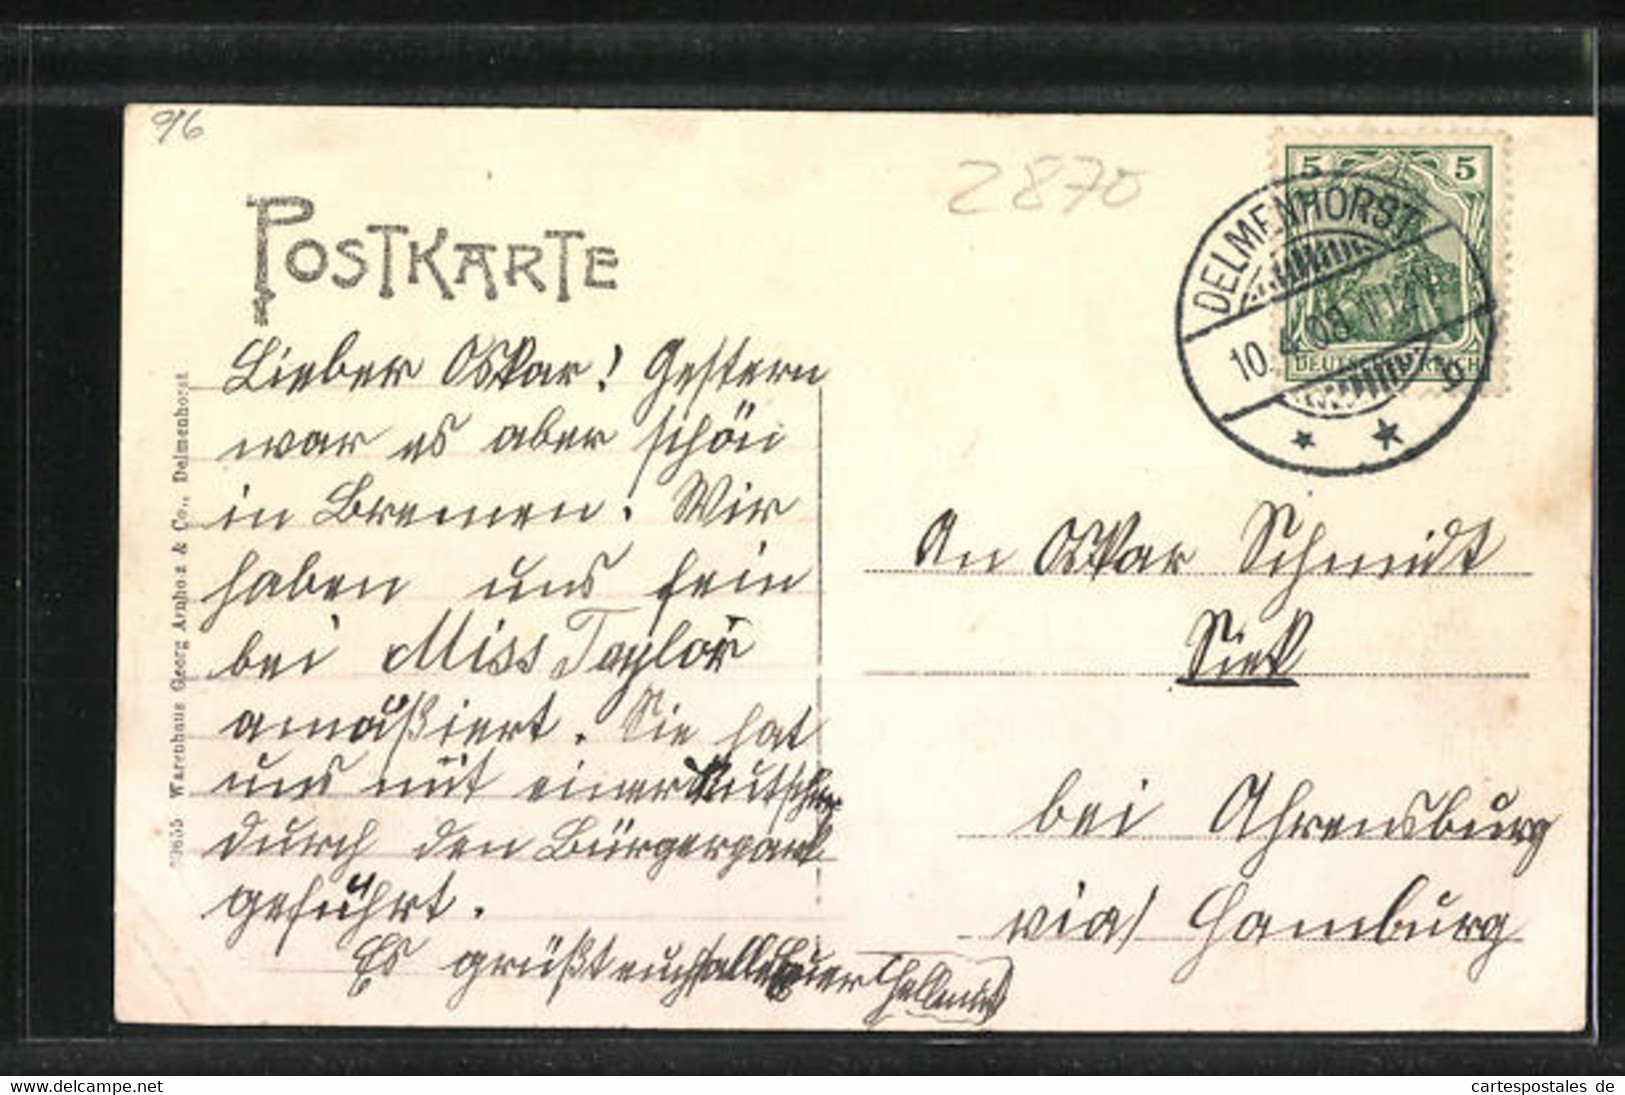 96
2870
POSTKARTE
5 5
DEUTSCHES REICH
DELMENHORST
10. 4. 08
Lieber Oskar! Gestern
war es aber schön
in Bremen. Wir
haben uns fein
bei Miss Taylor
amüßiert. Sie hat
uns mit einer Kutsche
durch den Bürgerpark
geführt.
Es grüßt euch alle Euer Hellmut
An Oskar Schmidt
Siek
bei Ahrensburg
via/ Hamburg
Warenhaus Georg Arnholz & Co., Delmenhorst
www.delcampe.net
cartespostales de